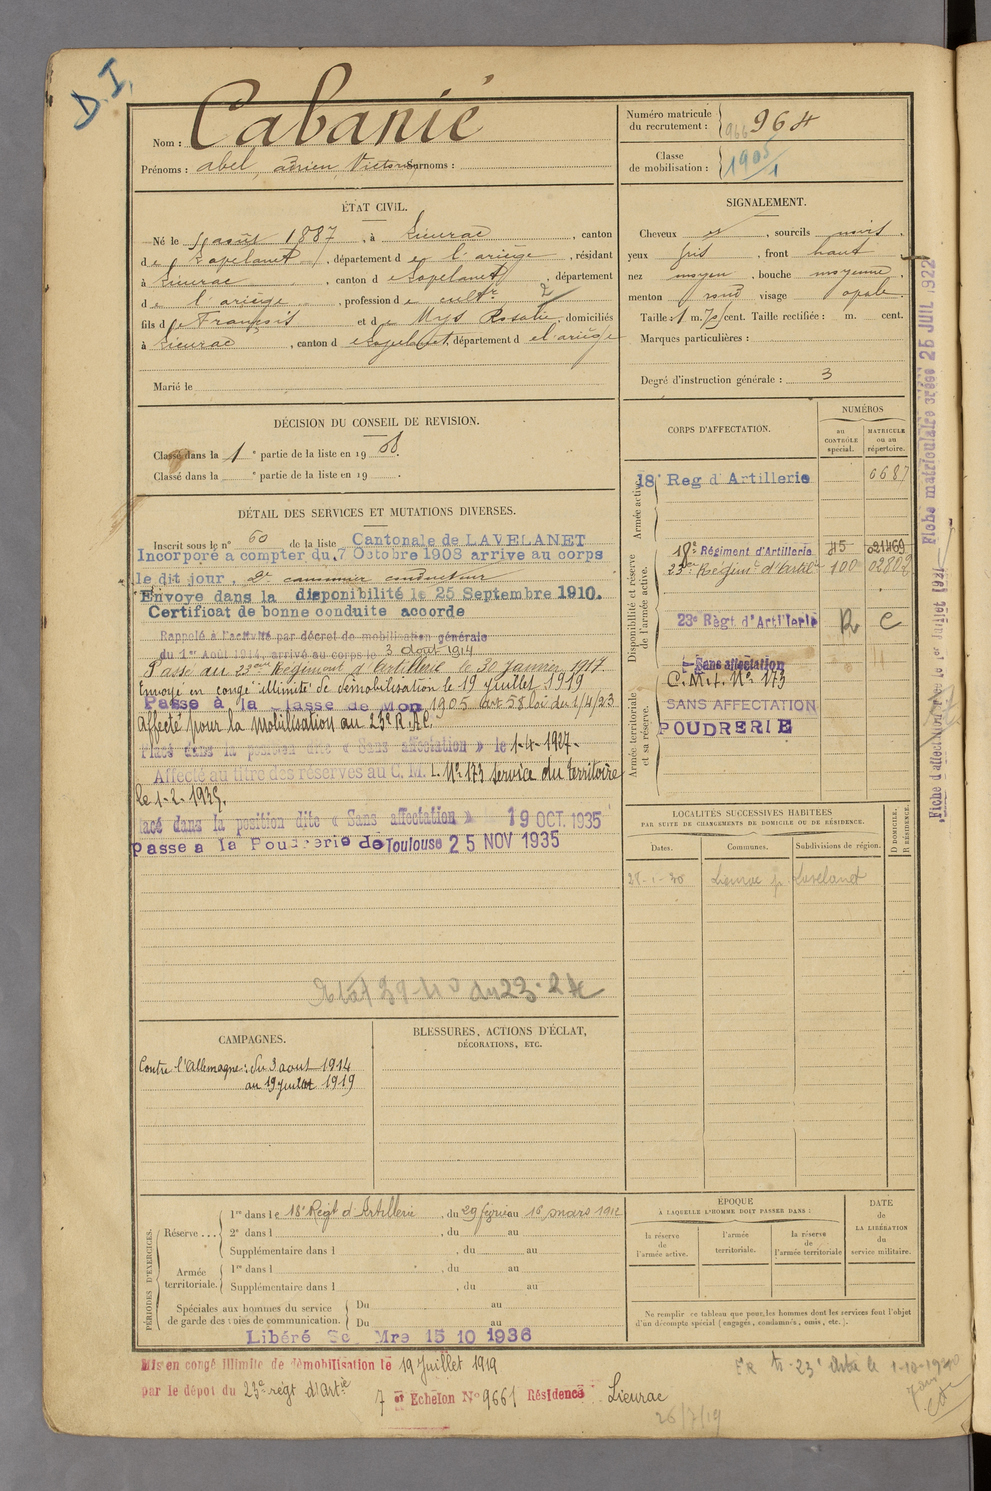 D.I.
Nom : Cabanié
Prénoms : abel, adrien Victorin Surnoms :
Numéro matricule du recrutement : 966 964
Classe de mobilisation : 1905/1
ÉTAT CIVIL.
Né le août 1887, à Lieurac, canton
de Lavelanet, département de l'ariège, résidant
à Lieurac, canton de Lavelanet, département
de l'ariège, profession de cultr 2
fils de François et de Mys Rosalie, domiciliés
à Lieurac, canton de Lavelanet, département de l'ariège
Marié le
SIGNALEMENT.
Cheveux et, sourcils noirs,
yeux gris, front haut
nez moyen, bouche moyenne,
menton rond visage opale.
Taille : 1 m. 70 cent. Taille rectifiée : m. cent.
Marques particulières :
Degré d'instruction générale : 3
DÉCISION DU CONSEIL DE REVISION.
Classé dans la 1 e partie de la liste en 1908.
Classé dans la e partie de la liste en 19 .
DÉTAIL DES SERVICES ET MUTATIONS DIVERSES.
Inscrit sous le n° 60 de la liste Cantonale de LAVELANET
Incorporé a compter du 7 Octobre 1908 arrive au corps
le dit jour, 2e canonnier conducteur
Envoye dans la disponibilité le 25 Septembre 1910.
Certificat de bonne conduite accorde
Rappelé à l'activité par décret de mobilisation générale
du 1er Août 1914, arrivé au corps le 3 Aout 1914
Passé au 23ème Régiment d'Artillerie le 30 janvier 1917
Envoyé en congé illimité de démobilisation le 19 juillet 1919
Passe à la classe de Mon 1905 art 58 loi du 1/4/23
Affecté pour la Mobilisation au 23e R.A.C.
Placé dans la position dite « Sans affectation » le 1-4-1927-
Affecté au titre des réserves au C. M. I. No 173 Service du territoire
le 1-2-1935.
lacé dans la position dite « Sans affectation » 19 OCT. 1935
passe a la Poudrerie de Toulouse 25 NOV 1935
39-40 du 23-2
CORPS D'AFFECTATION.
NUMÉROS
au CONTRÔLE spécial.
MATRICULE ou au répertoire.
Armée active.
18e Reg d'Artillerie 6687
Disponibilité et réserve de l'armée active.
18e Régiment d'Artillerie 45 021469
23ème Régimt d'Artie 100 02802
23e Règt d'Artillerie R C
Armée territoriale et sa réserve.
Sans affectation
C.M.I. No 173
SANS AFFECTATION
POUDRERIE
LOCALITÉS SUCCESSIVES HABITÉES
PAR SUITE DE CHANGEMENTS DE DOMICILE OU DE RÉSIDENCE.
Dates. Communes. Subdivisions de région. D DOMICILE. R RÉSIDENCE.
28-1-20 Lieurac p. Lavelanet
CAMPAGNES.
Contre l'Allemagne : du 3 aout 1914
au 19 juillet 1919
BLESSURES, ACTIONS D'ÉCLAT,
DÉCORATIONS, ETC.
PÉRIODES D'EXERCICES.
Réserve ... 1re dans le 18e Régt d'Artillerie, du 29 février au 16 mars 1912
2e dans l , du au
Supplémentaire dans l , du au
Armée territoriale. 1re dans l , du au
Supplémentaire dans l , du au
Spéciales aux hommes du service de garde des voies de communication. Du au
Du au
Libéré Sce Mre 15 10 1936
ÉPOQUE
À LAQUELLE L'HOMME DOIT PASSER DANS :
la réserve de l'armée active.
l'armée territoriale.
la réserve de l'armée territoriale
DATE de LA LIBÉRATION du service militaire.
Ne remplir ce tableau que pour les hommes dont les services font l'objet
d'un décompte spécial (engagés, condamnés, omis, etc.).
Mis en congé illimité de démobilisation le 19 Juillet 1919
par le dépot du 23e régt d'artie
7 e Echelon N° 9661 Résidence Lieurac
26/7/19
23e le 1-10-19
Fiche matriculaire créée 25 JUIL 1922
Fiche d'affectation créée le 1er juillet 1921